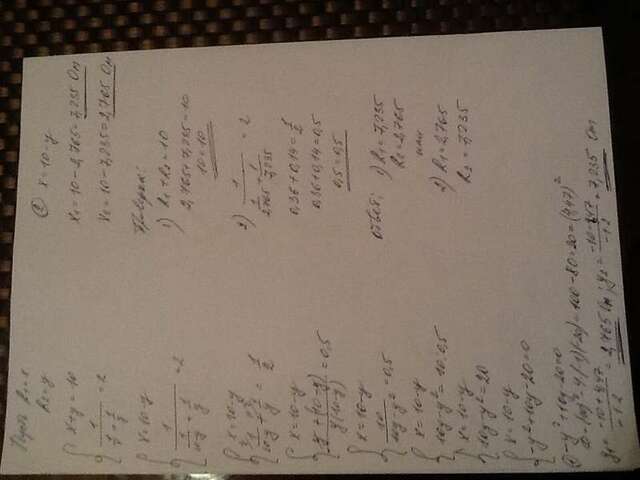 Пусть R₁=x
R₂=y
{ x+y=10
{ 1/(1/x+1/y)=2
{ x=10-y
{ 1/(1/(10-y)+1/y)=2
{ x=10-y
{ 1/(10-y)+1/y=1/2
{ x=10-y
{ (y+(10-y))/(y(10-y))=0,5
{ x=10-y
{ 10/(10y-y²)=0,5
{ x=10-y
{ 10y-y²=10:0,5
{ x=10-y
{ 10y-y²=20
{ x=10-y
{ -y²+10y-20=0
① -y²+10y-20=0
D=10²-4·(-1)(-20)=100-80=20=(4,47)²
y₁=(-10+4,47)/(-1·2)=2,765 Ом; y₂=(-10-4,47)/(-1·2)=7,235 Ом
② x=10-y
x₁=10-2,765=7,235 Ом
x₂=10-7,235=2,765 Ом
Проверка:
1) R₁+R₂=10
2,765+7,235=10
10=10
2) 1/(1/2,765+1/7,235)=2
0,36+0,14=1/2
0,36+0,14=0,5
0,5=0,5
Ответ: 1) R₁=7,235
R₂=2,765
или
2) R₁=2,765
R₂=7,235